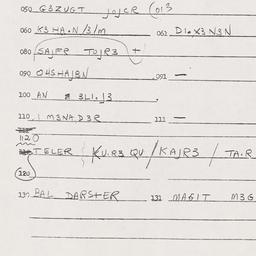 050 G3ZUGT JOJCR (013
060 K3HA.N/3/M 061 DI.X3N3N
080 SAJFR TOJR3 +
090 OHSHAJBN 091 —
100 AN 3L1.J3
110 IM3NA.D3R 111 —
1120
TELER KU.R3 QU / KAJR3 / TA.R
120
130 BAL DARSTER 131 MAGIT M3G